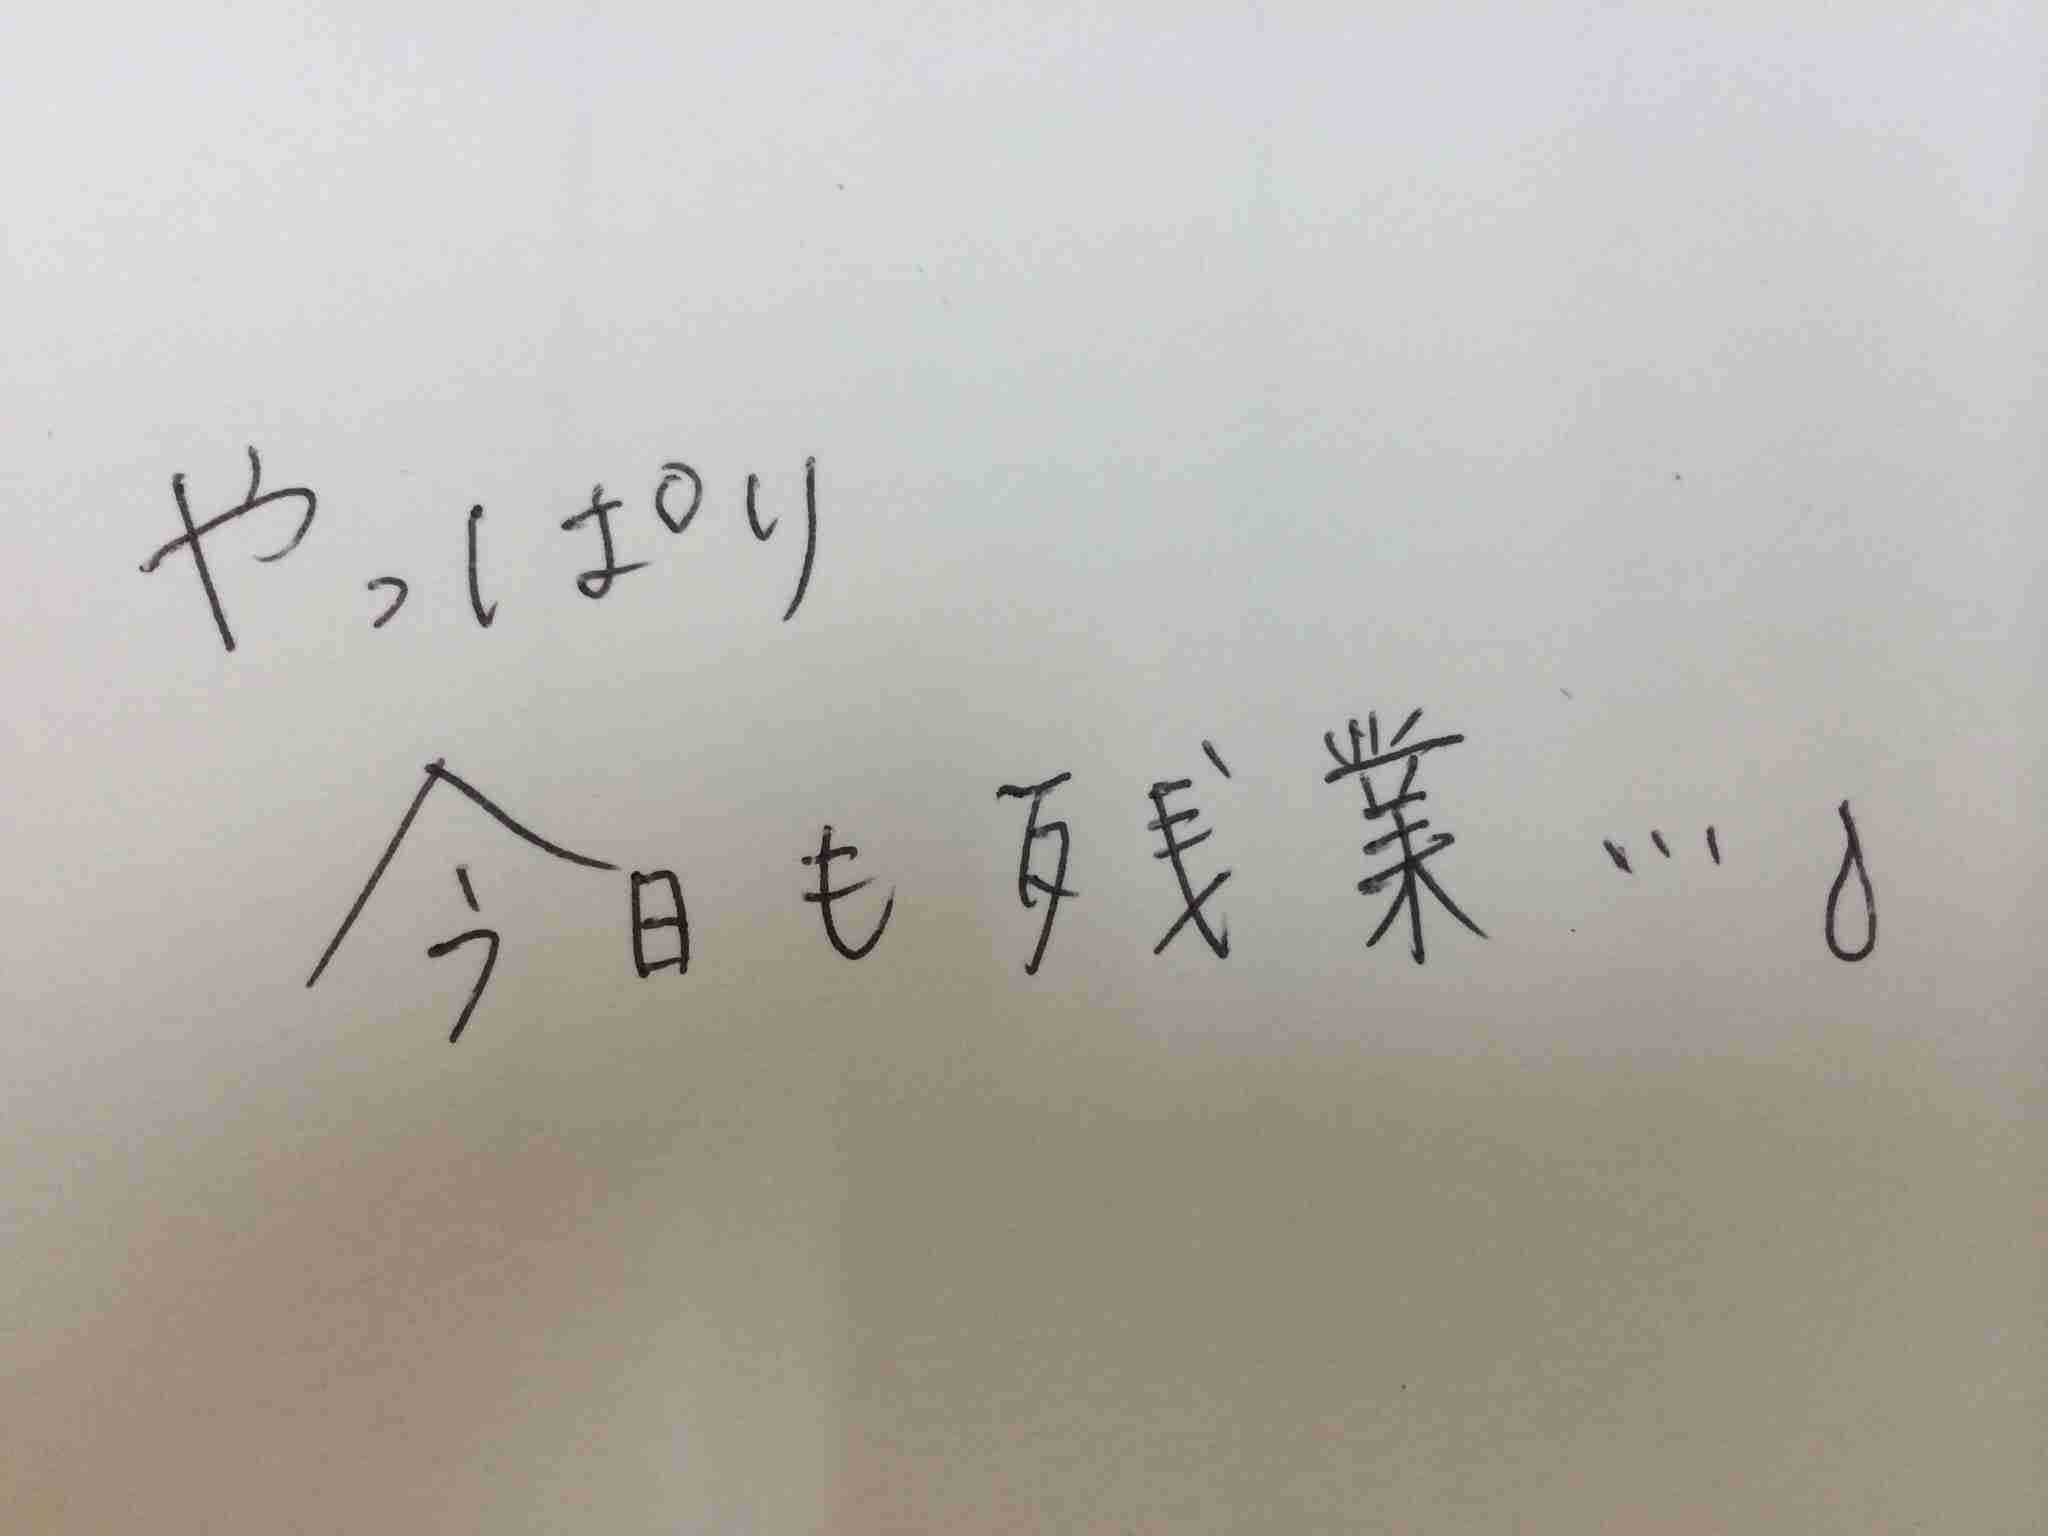 やっぱり
今日も残業…